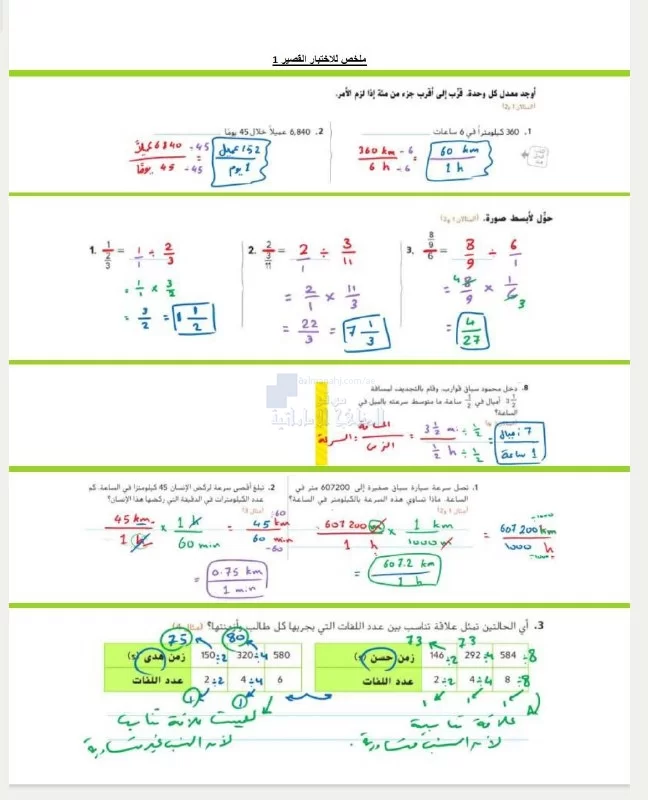 ملخص للاختبار القصير 1
أوجد معدل كل وحدة. قرّب إلى أقرب جزء من مئة إذا لزم الأمر.
1. 360 كيلومترًا في 6 ساعات
360 km ÷6 / 6 h ÷6 = 60 km / 1 h
2. 6,840 عميلاً خلال 45 يومًا
6840 عميلاً ÷45 / 45 يومًا ÷45 = 152 عميل / 1 يوم
حوّل لأبسط صورة.
1. 1 / 2/3 = 1/1 ÷ 2/3
= 1/1 × 3/2
= 3/2 = 1 1/2
2. 2 / 3/11 = 2/1 ÷ 3/11
= 2/1 × 11/3
= 22/3 = 7 1/3
3. 8/9 / 6 = 8/9 ÷ 6/1
= 4 8/9 × 1/6 3
= 4/27
8. دخل محمود سباق قوارب، وقام بالتجديف لمسافة
3 1/2 أميال في 1/2 ساعة. ما متوسط سرعته بالميل في
الساعة؟
السرعة = المسافة / الزمن = 3 1/2 mi ÷ 1/2 / 1/2 h ÷ 1/2 = 7 أميال / 1 ساعة
موقع
المناهج الإماراتية
almanahj.com/ae
1. تصل سرعة سيارة سباق صغيرة إلى 607200 متر في
الساعة. ماذا تساوي هذه السرعة بالكيلومتر في الساعة؟
607200 m / 1 h × 1 km / 1000 m = 607200 km ÷1000 / 1000 h ÷1000
= 607.2 km / 1 h
2. تبلغ أقصى سرعة لركض الإنسان 45 كيلومترًا في الساعة. كم
عدد الكيلومترات في الدقيقة التي ركضها هذا الإنسان؟
45 km / 1 h × 1 h / 60 min = 45 km ÷60 / 60 min ÷60
= 0.75 km / 1 min
3. أي الحالتين تمثل علاقة تناسب بين عدد اللفات التي يجريها كل طالب وأزمنتها؟
73 73
زمن حسن 146 ÷2 292 ÷4 584 ÷8
عدد اللفات 2 ÷2 4 ÷4 8 ÷8
1 1 1
علاقة تناسبية
لأن النسب متساوية.
75 80
زمن هدى 150 ÷2 320 ÷4 580
عدد اللفات 2 ÷2 4 ÷4 6
1 1
ليست علاقة تناسب
لأن النسب غير متساوية